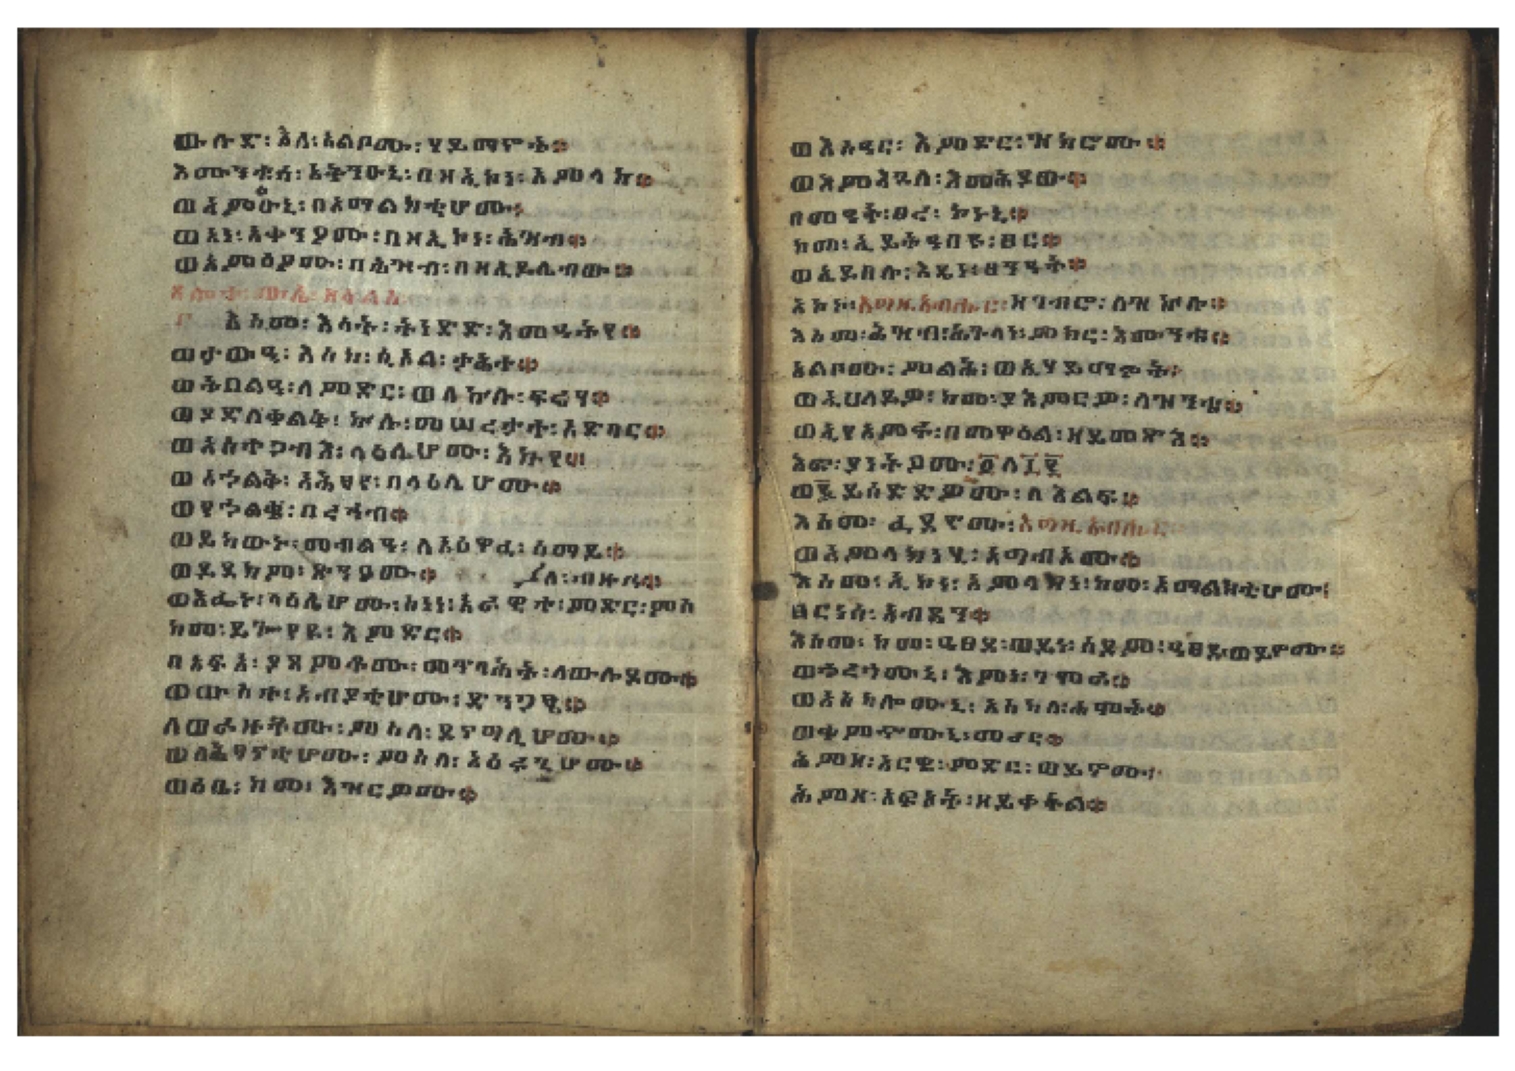 ውሉድ፡ እለ፡ አልቦሙ፡ ሃይማኖት።
እሙንቱሂ፡ አቅንዑኒ፡ በዘኢኮነ፡ አምላክ።
ወአምዑኒ፡ በአማልክቲሆሙ።
ወአነ፡ አቀንዖሙ፡ በዘኢኮነ፡ ሕዝብ።
ወአምዕዖሙ፡ በሕዝብ፡ በዘኢይሌብው።
ጸሎተ፡ ሙሴ፡
እስመ፡ እሳት፡ ትነድድ፡ እመዓትየ።
ወታውዒ፡ እስከ፡ ሲኦል፡ ታሕቱ።
ወትበልዓ፡ ለምድር፡ ወለኵሉ፡ ፍሬሃ።
ወያድለቀልቅ፡ ኵሉ፡ መሠረታተ፡ አድባር።
ወእስተጋብእ፡ ላዕሌሆሙ፡ እኩየ።
ወአኀልቅ፡ አሕፃየ፡ በላዕሌሆሙ።
ወየኀልቁ፡ በረኃብ።
ወይከውኑ፡ መብልዓ፡ ለአዕዋፈ፡ ሰማይ።
ወይደክም፡ ጽንዖሙ።
ወእፌኑ፡ ላዕሌሆሙ፡ ስነነ፡ አራዊተ፡ ምድር፡ ምስ
ከመ፡ ይጕየዩ፡ እምድር።
በአፍአ፡ መጥባሕት፡ ለውሉዶሙ።
ወውስተ፡ አብያቲሆሙ፡ ድንጋፄ።
ለወራዙቶሙ፡ ምስለ፡ ደናግሊሆሙ።
ወለሕፃናቲሆሙ፡ ምስለ፡ አዕሩጊሆሙ።
ወእቤ፡ ከመ፡ እዝርዎሙ።
ወእስዓር፡ እምድር፡ ዝክሮሙ።
ወእምእጓለ፡ እመሕያው።
በመዓተ፡ ፀር፡ ኮነኒ።
ከመ፡ ኢይትዓበዩ፡ ፀር።
ወኢይበሉ፡ እዴነ፡ ፀንዓት።
አኮኑ፡ እግዚአብሔር፡ ዘገብሮ፡ ለዝ ኵሉ።
እስመ፡ ሕዝብ፡ ሕጉላነ፡ ምክር፡ እሙንቱ።
አልቦሙ፡ ምልሕ፡ ወኢሃይማኖት።
ወኢሀለይዎ፡ ከመ፡ ያእምርዎ፡ ለዝንቱ።
ወኢየአምሩ፡ በመዋዕል፡ ዘይመጽእ።
እፎ፡ ፩ ለ፲፻
ወ፪ ይሰድድዎሙ፡ ለእልፍ።
እስመ፡ ፈደዮሙ፡ እግዚአብሔር
ወአምላክነሂ፡ አግብኦሙ።
እስመ፡ ኢኮነ፡ አምላክነ፡ ከመ፡ አማልክቲሆሙ፡
ፀርነሰ፡ አብዳን።
እስመ፡ ከመ፡ ዓፀደ፡ ወይነ፡ ሰዶም፡ ዓፀደ፡ ወይኖሙ።
ወሐረጎሙኒ፡ እምነ፡ ጎሞራ።
ወአስካሎሙኒ፡ አስካለ፡ ሐሞት።
ወቀምኆሙኒ፡ መሪር።
ሕምዘ፡ አርዌ፡ ምድር፡ ወይኖሙ፡
ሕምዘ፡ አፍዖት፡ ዘይቀትል።